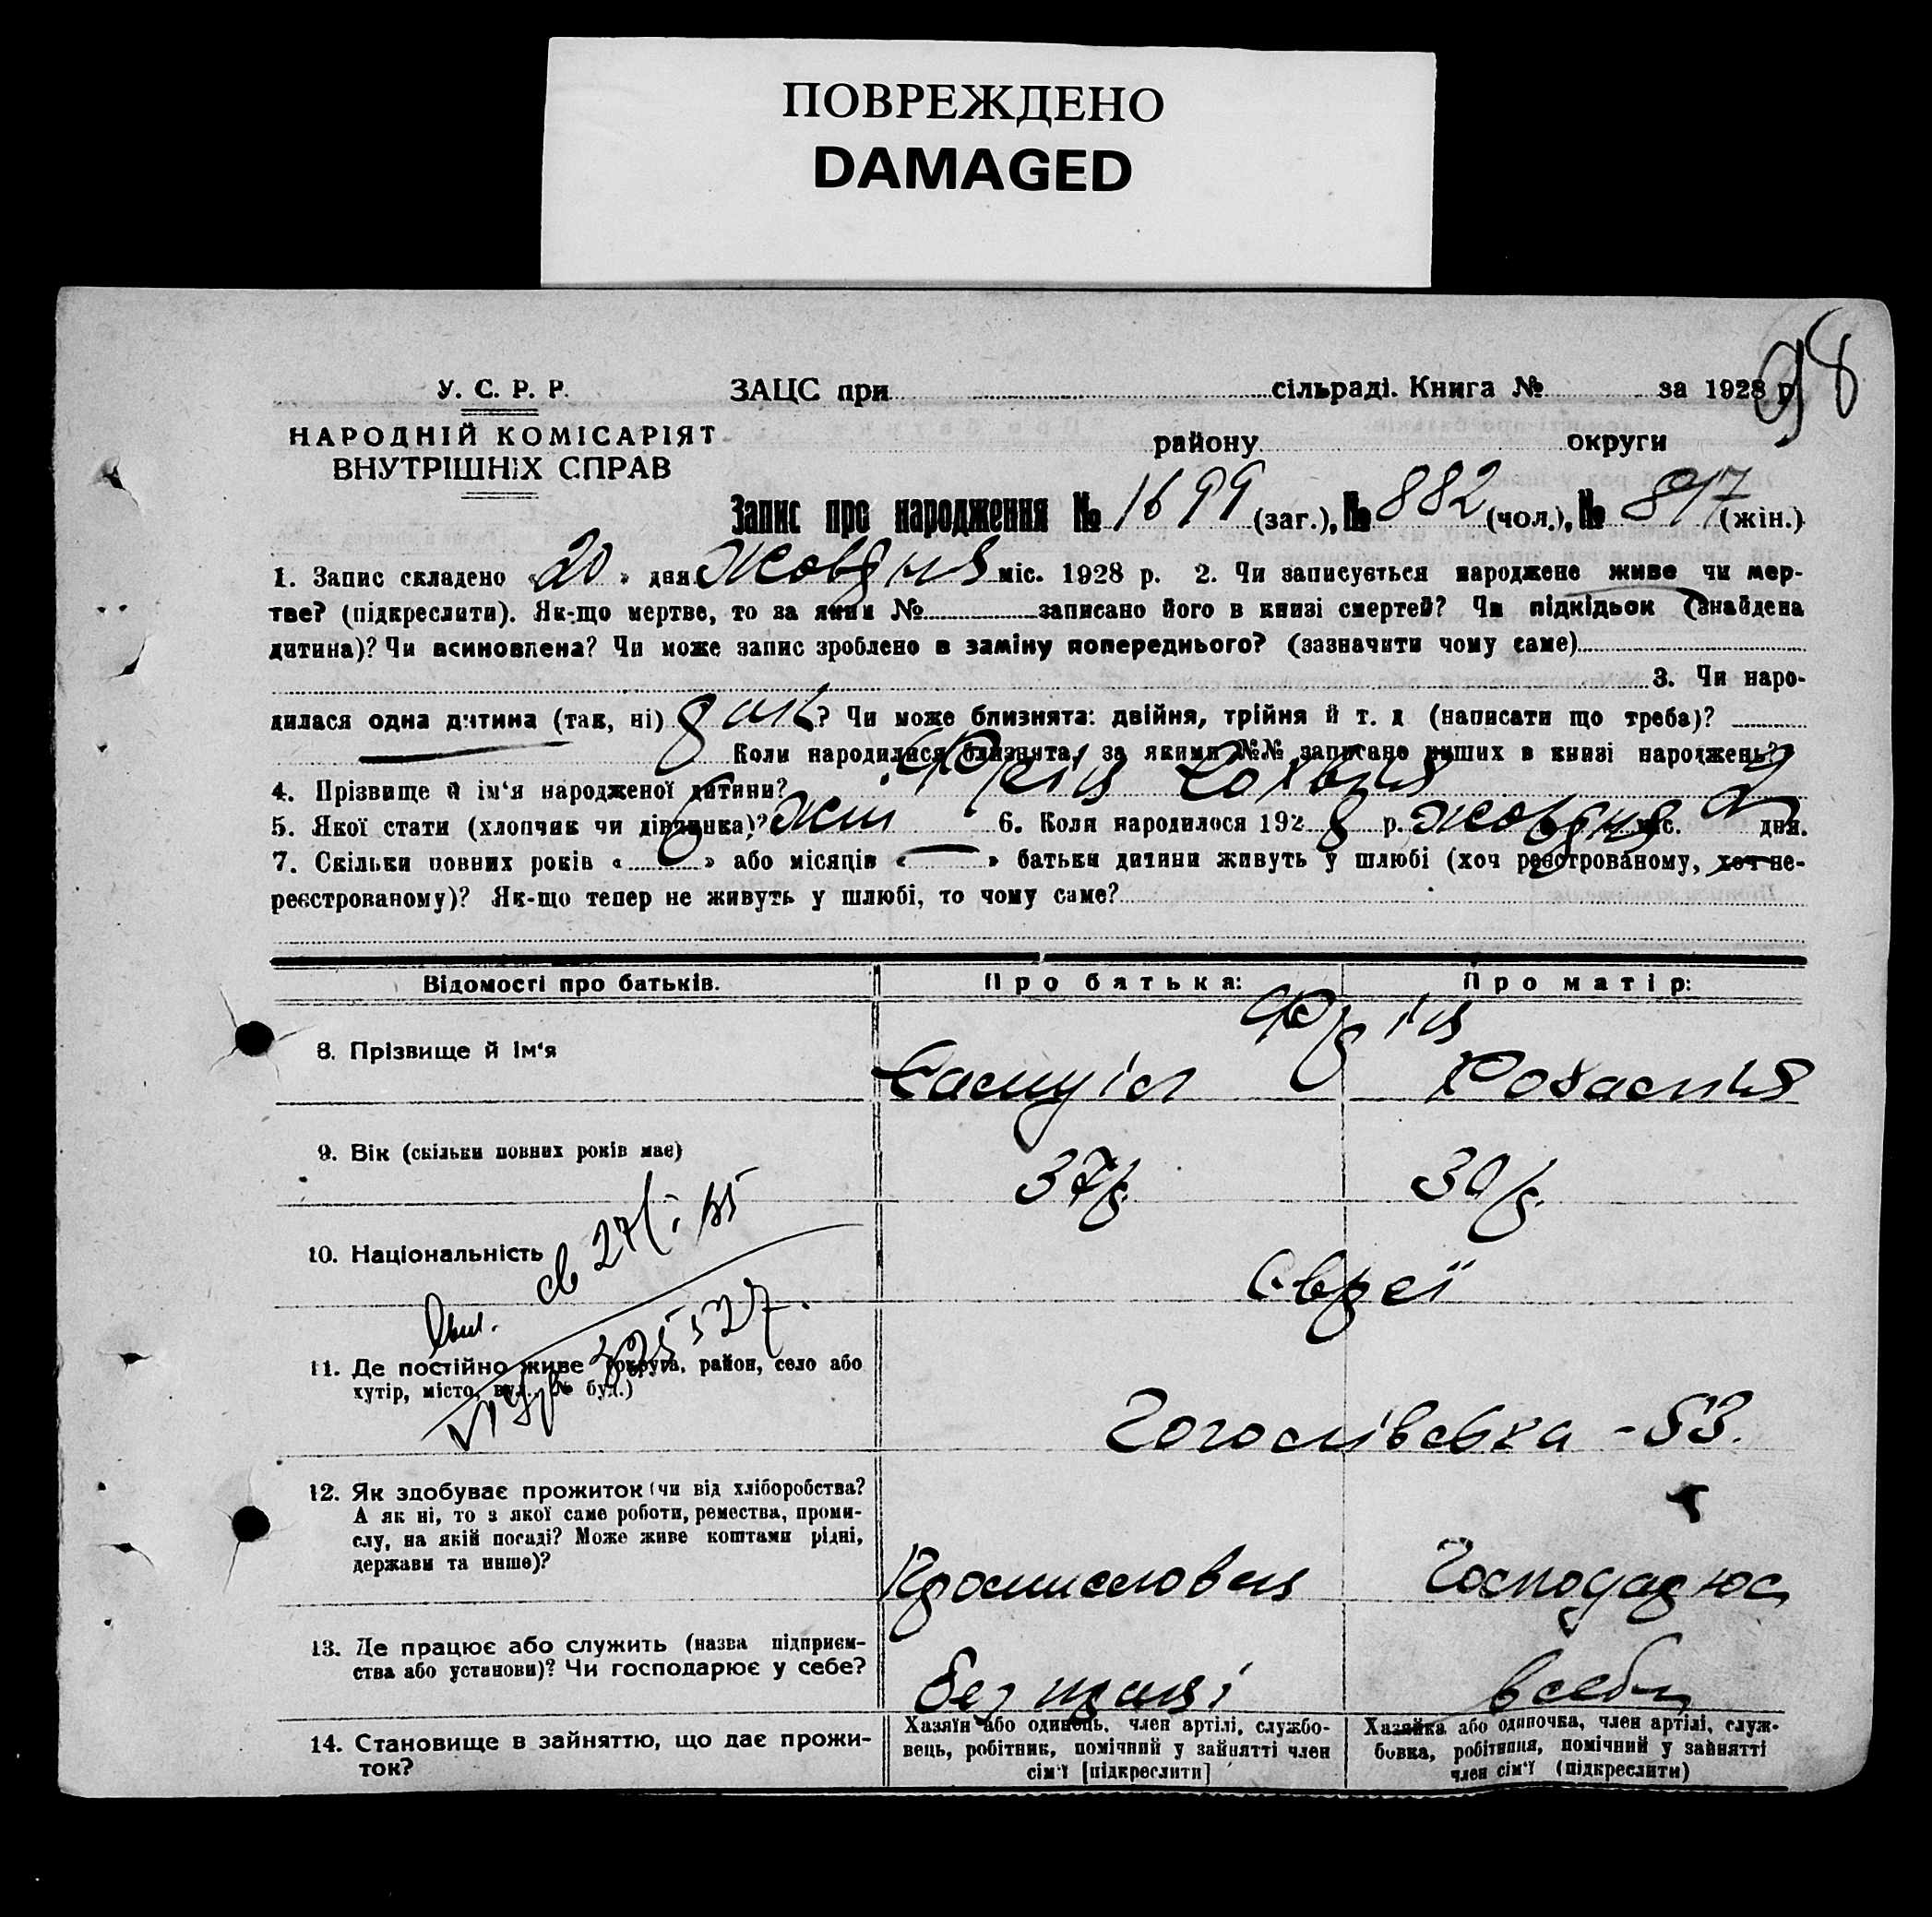 ПОВРЕЖДЕНО
DAMAGED
98
У. С. Р. Р. ЗАЦС при сільраді. Книга № за 1928 р.
НАРОДНІЙ КОМІСАРІЯТ району округи
ВНУТРІШНІХ СПРАВ
Запис про народження № 1699 (заг.), № 882 (чол.), № 817 (жін.)
1. Запис складено « 20 » дня Жовтня міс. 1928 р. 2. Чи записується народжене живе чи мер-
тве? (підкреслити). Як-що мертве, то за яким № записано його в книзі смертей? Чи підкідьок (знайдена
дитина)? Чи всиновлена? Чи може запис зроблено в заміну попереднього? (зазначити чому саме)
3. Чи наро-
дилася одна дитина (так, ні) ? Чи може близнята: двійня, трійня й т. д (написати що треба)?
Коли народилися близнята, за якими №№ записано инших в книзі народжень?
4. Прізвище й ім'я народженої дитини?
5. Якої стати (хлопчик чи дівчинка)? жін 6. Коли народилося 1928 р. жовтня міс. 2 дня.
7. Скільки повних років « » або місяців « — » батьки дитини живуть у шлюбі (хоч реєстрованому, хоч не-
реєстрованому)? Як-що тепер не живуть у шлюбі, то чому саме?
Відомості про батьків. Про батька: Про матір:
8. Прізвище й ім'я
Самуіл
9. Вік (скільки повних років має) 37 р. 30 р.
10. Національність Євреї
11. Де постійно живе (округа, район, село або
хутір, місто, вул., № буд.)
Гоголівська - 53.
12. Як здобуває прожиток (чи від хліборобства?
А як ні, то з якої саме роботи, ремества, проми-
слу, на якій посаді? Може живе коштами рідні,
держави та инше)?
13. Де працює або служить (назва підприєм-
ства або установи)? Чи господарює у себе?
без праці в себе
14. Становище в зайняттю, що дає прожи-
ток?
Хазяїн або одинець, член артілі, службо-
вець, робітник, помічний у зайнятті член
сім'ї [підкреслити]
Хазяйка або одиночка, член артілі, служ-
бовка, робітниця, помічний у зайнятті
член сім'ї (підкреслити)